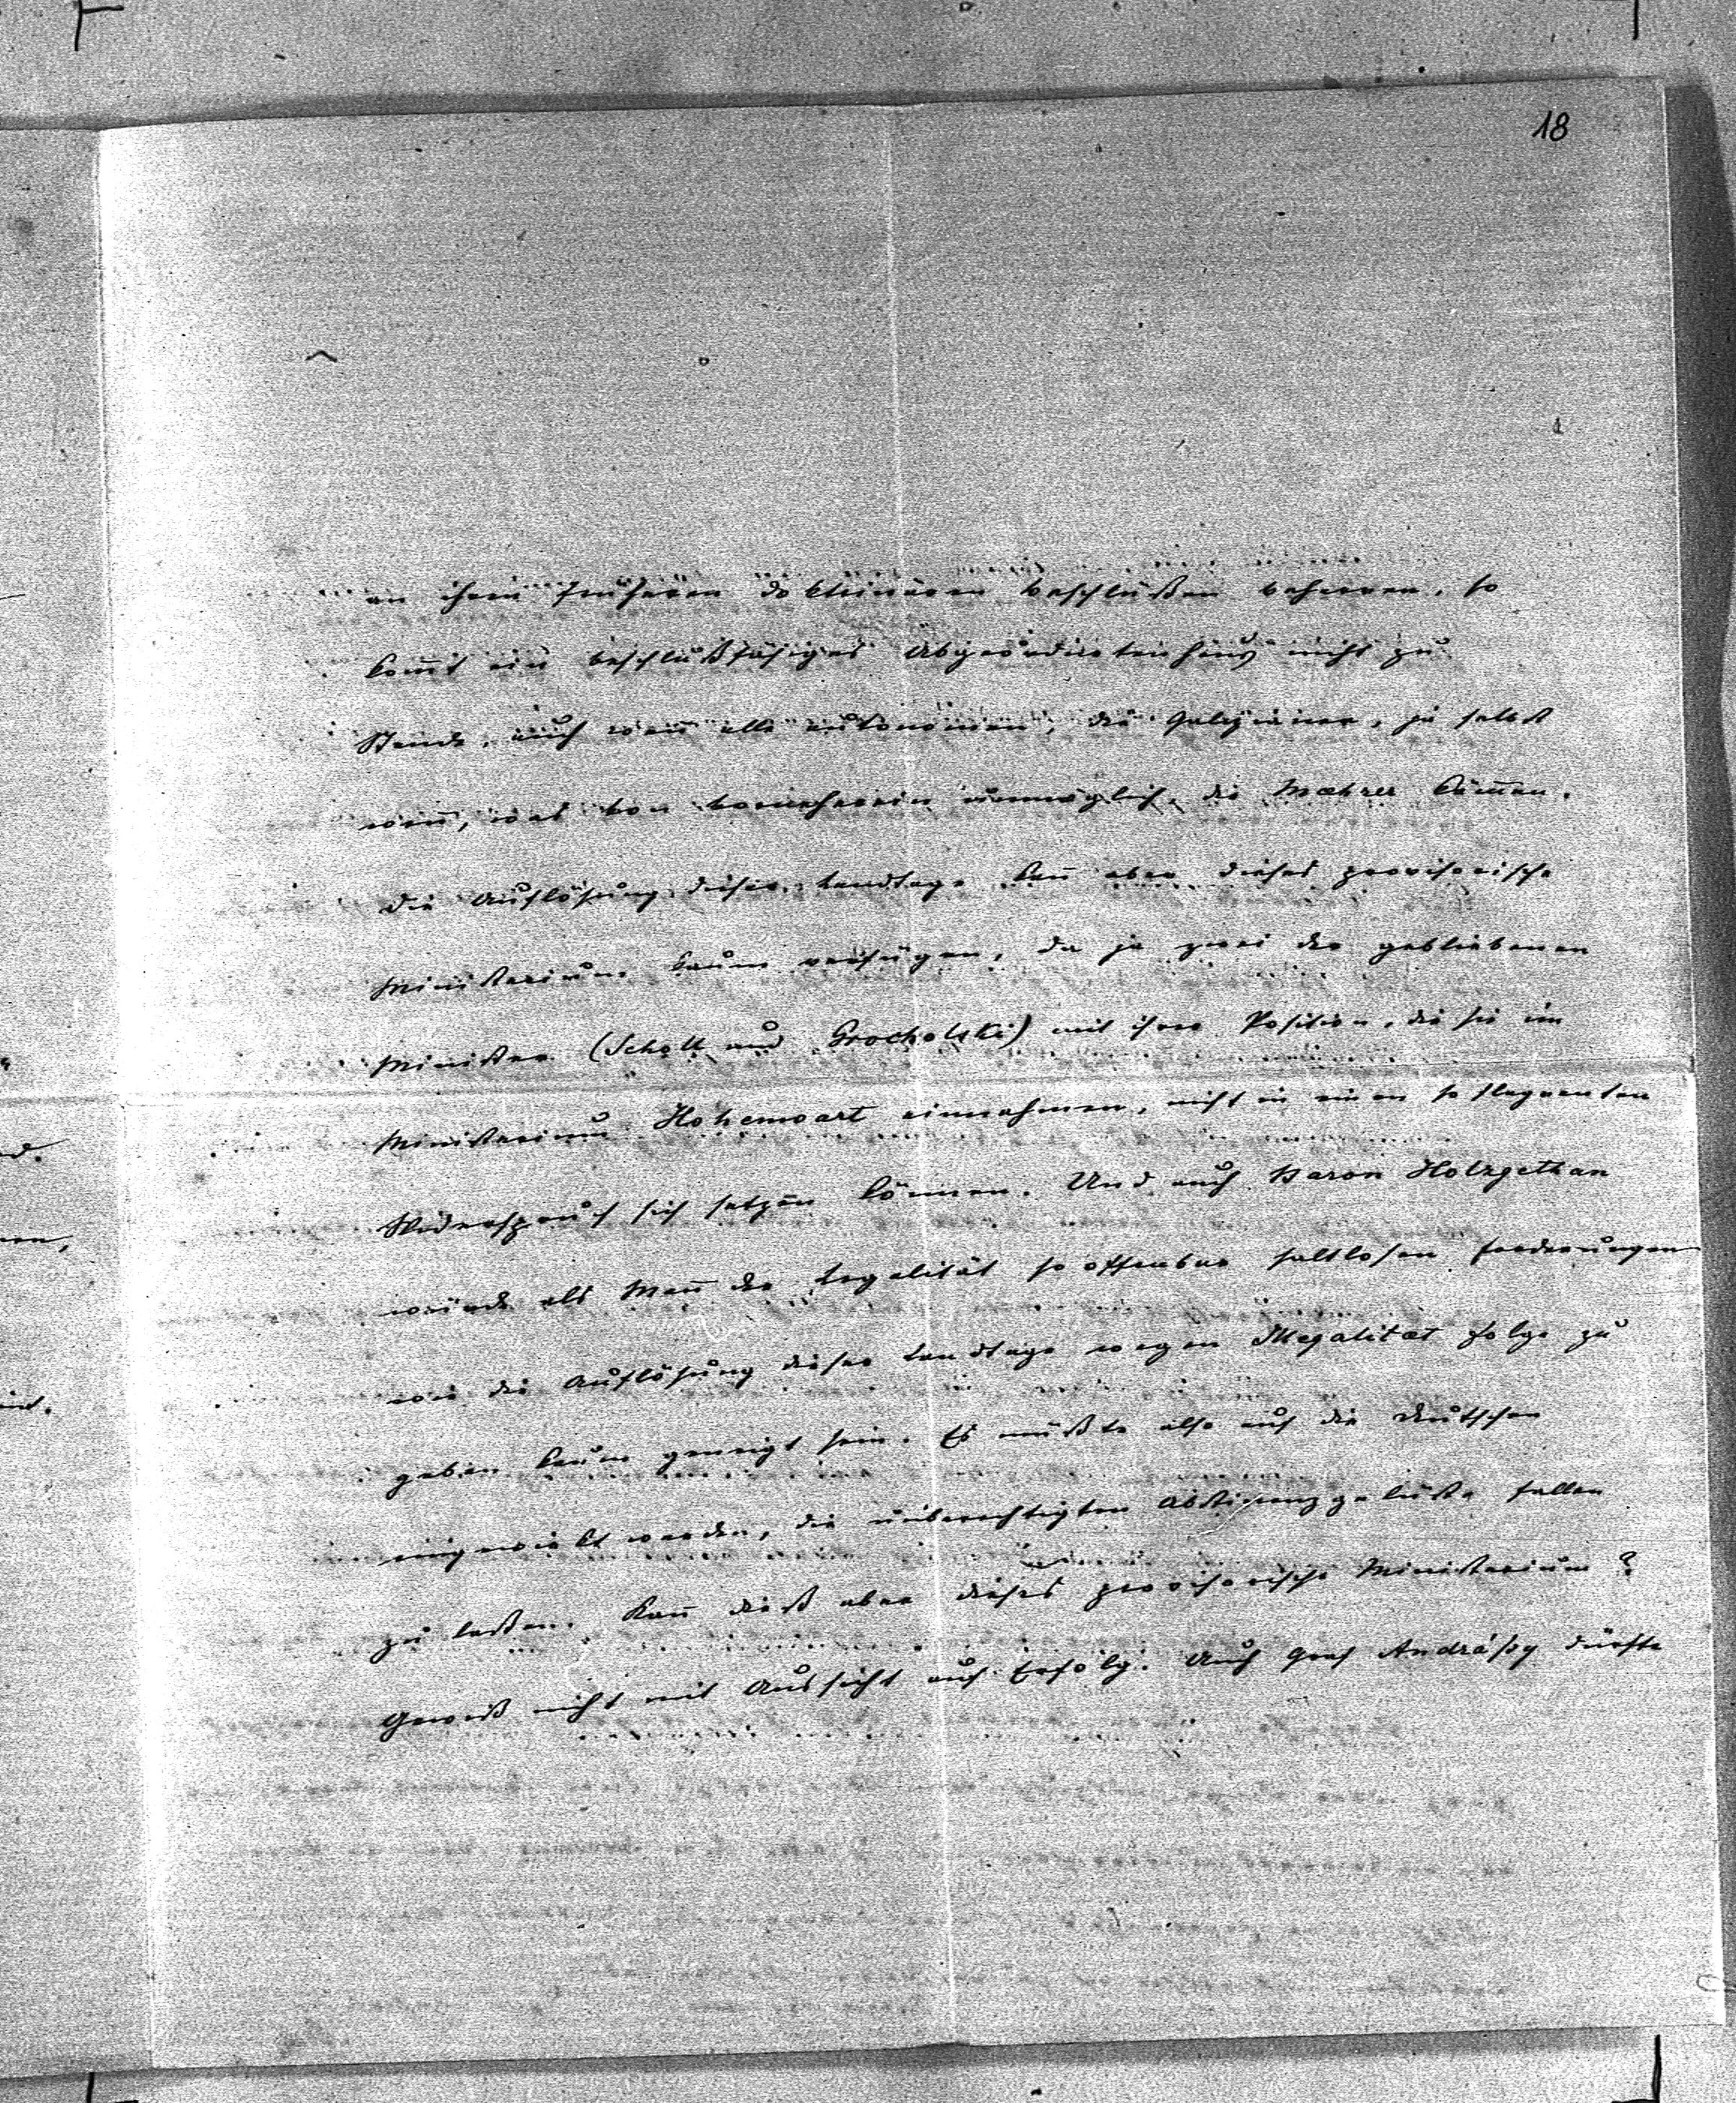 18
an ihren früheren doktrinären Beschlüßen beharren, so
kom̅t ein beschlußfähiges Abgeordnetenhaus nicht zu
Stande, auch wen̅ alle Autonomen, die Galizianer, ja selbst
wen̅, was von vorneherein unmöglich, die Mæhrer kom̅en.
Die Auflösung dieser Landtage kan̅ aber dieses provisorische
Ministerium kaum verfügen, da ja zwei der gebliebenen
Minister (Scholl und Grocholski) mit ihrer Position, die sie im
Ministerium Hohenwart einnahmen, nicht in einen so flagranten
Widerspruch sich setzen können. Und auch Baron Holzgethan
würde als Man̅ der Legalität so offenbar haltlosen Forderungen
wie die Auflösung dieser Landtage wegen Illegalitæt Folge zu
geben kaum geneigt sein. Es müßte also auf die Deutschen
eingewirkt werden, die unberechtigten Abstinenzgelüste fallen
zu laßen. Kan̅ dieß aber dieses provisorische Ministerium?
Gewiß nicht mit Aussicht auf Erfolg. Auch Graf Andráßy dürfte